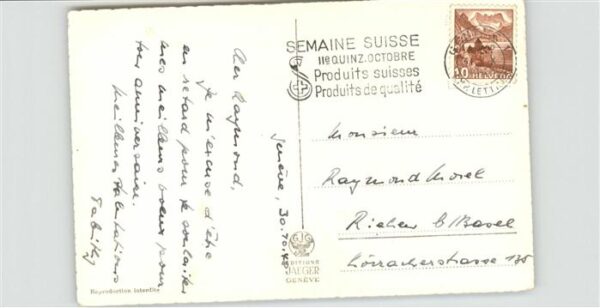 SEMAINE SUISSE
IIe QUINZ. OCTOBRE
Produits suisses
Produits de qualité
10
HELVETIA
Genève, 30.10.
Cher Raymond,
Je m'excuse d'être
en retard pour te souhaiter
mes meilleurs voeux pour
ton anniversaire.
Meilleures Salutations
Monsieur
Raymond Morel
Riehen b/Basel
Lörracherstrasse 135
EDITIONS
JAEGER
GENÈVE
Reproduction interdite